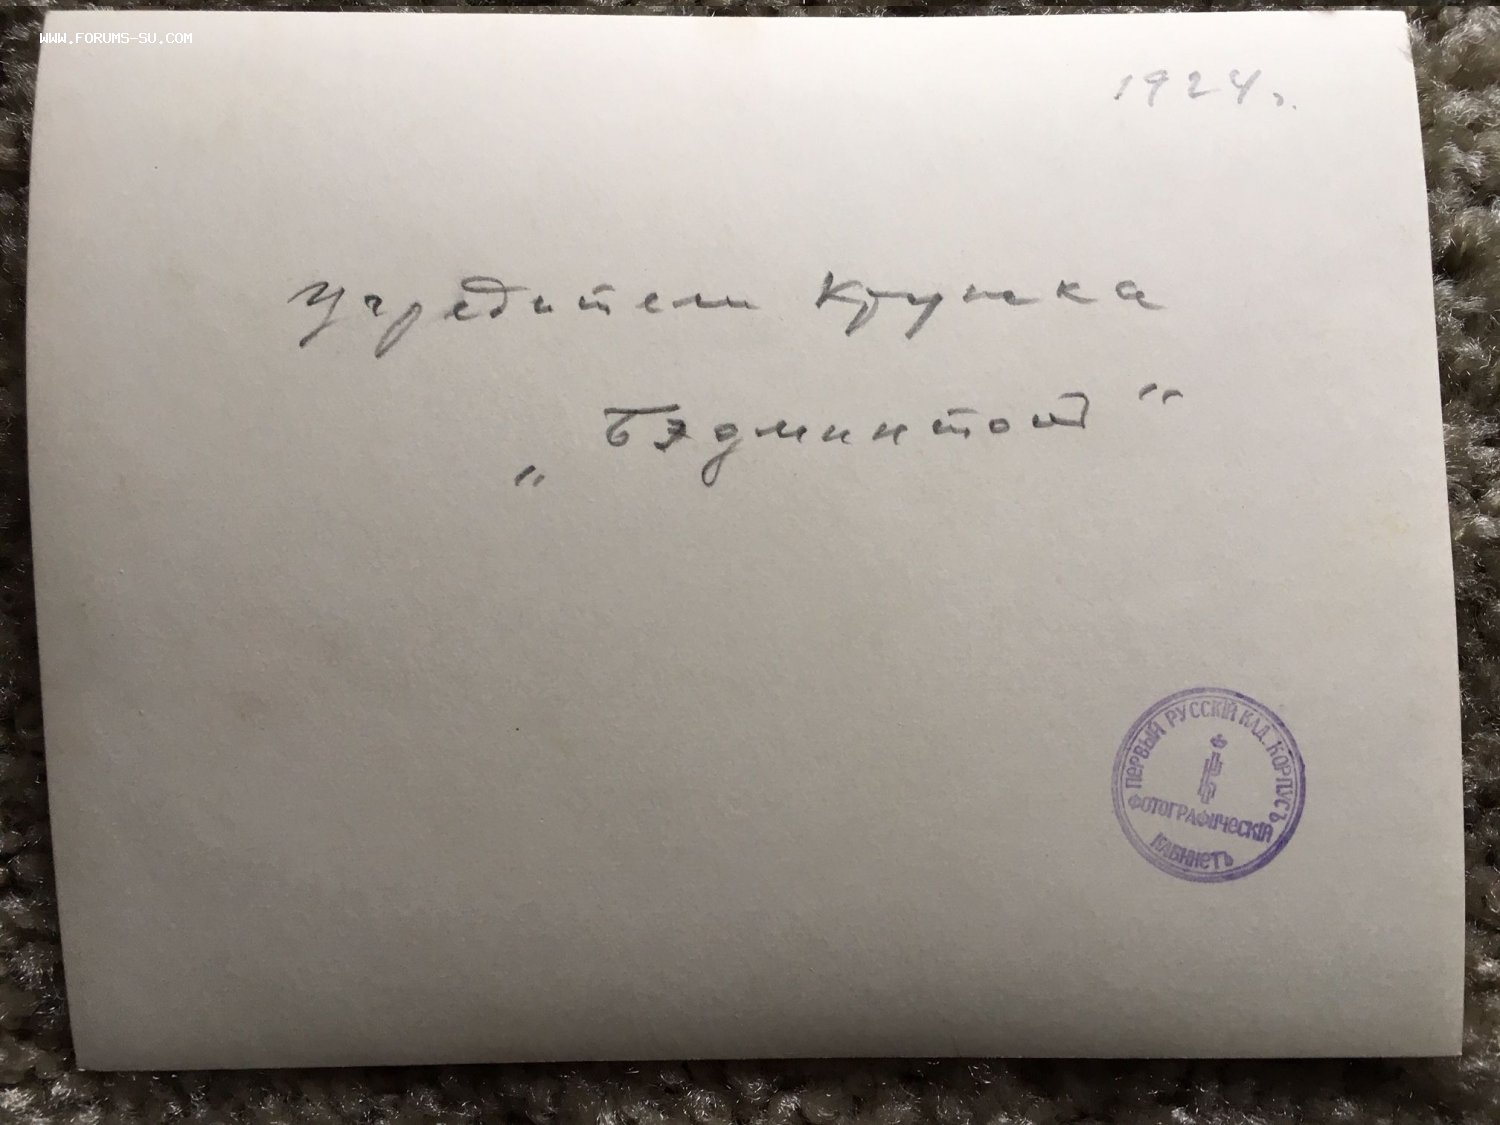 WWW.FORUMS-SU.COM
1924г.
Учредители Кружка
„Бэдминтон“
ПЕРВЫЙ РУССКІЙ КАД. КОРПУСЪ
ФОТОГРАФИЧЕСКІЙ
КАБИНЕТЪ